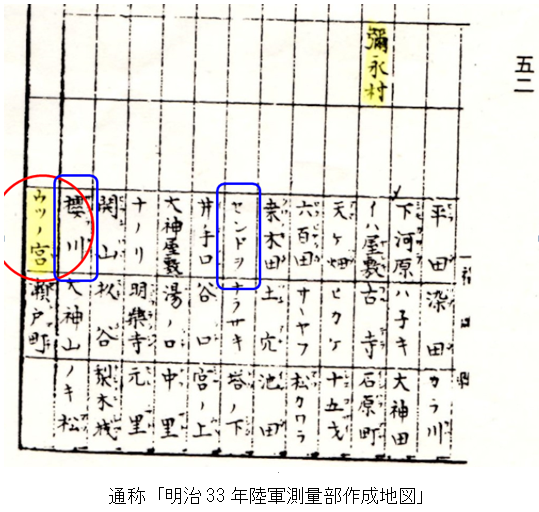 五二
彌永村
平田 染田 カラ川
下河原 ハ子キ 大神田
イハ屋敷 古寺 石原町
天ケ畑 ヒカケ 十五才
六百田 サヤフ 松クワラ
桑木田 土穴 池田
センドヲ オノサキ 塔ノ下
井手口 谷口 宮ノ上
大神屋敷 湯ノ口 中里
ナノリ 明楽寺 元里
関山 杦谷 梨木
櫻川 大神山ノキ 松
ウツノ宮 瀬戸町
通称「明治33年陸軍測量部作成地図」